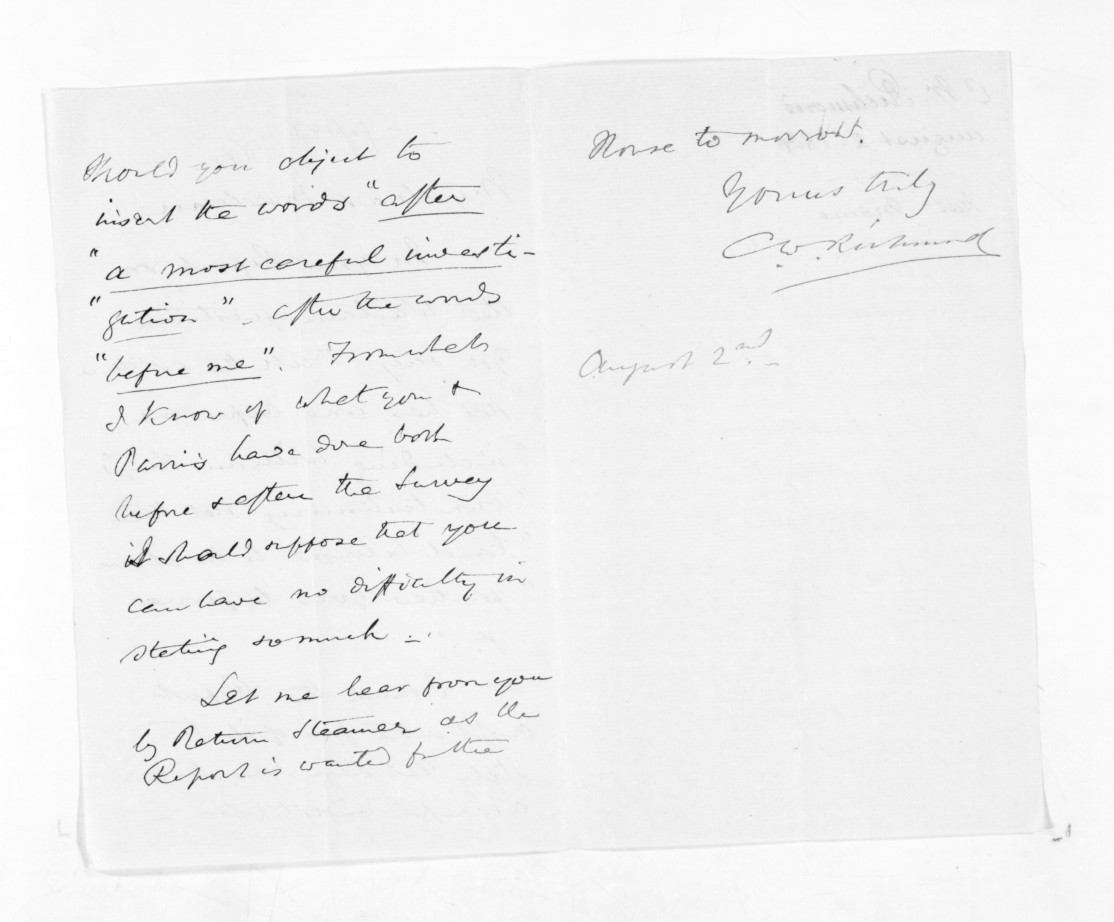 Would you object to
insert the words "after
"a most careful investi-
"gation" - after the words
"before me". From what
I know of what you &
Parris have done both
before & after the Survey
I should suppose that you
can have no difficulty in
stating so much -.
Let me hear from you
by Return Steamer as the
Report is wanted for the
House to morrow.
Yours truly
C.W. Richmond
August 2nd. -